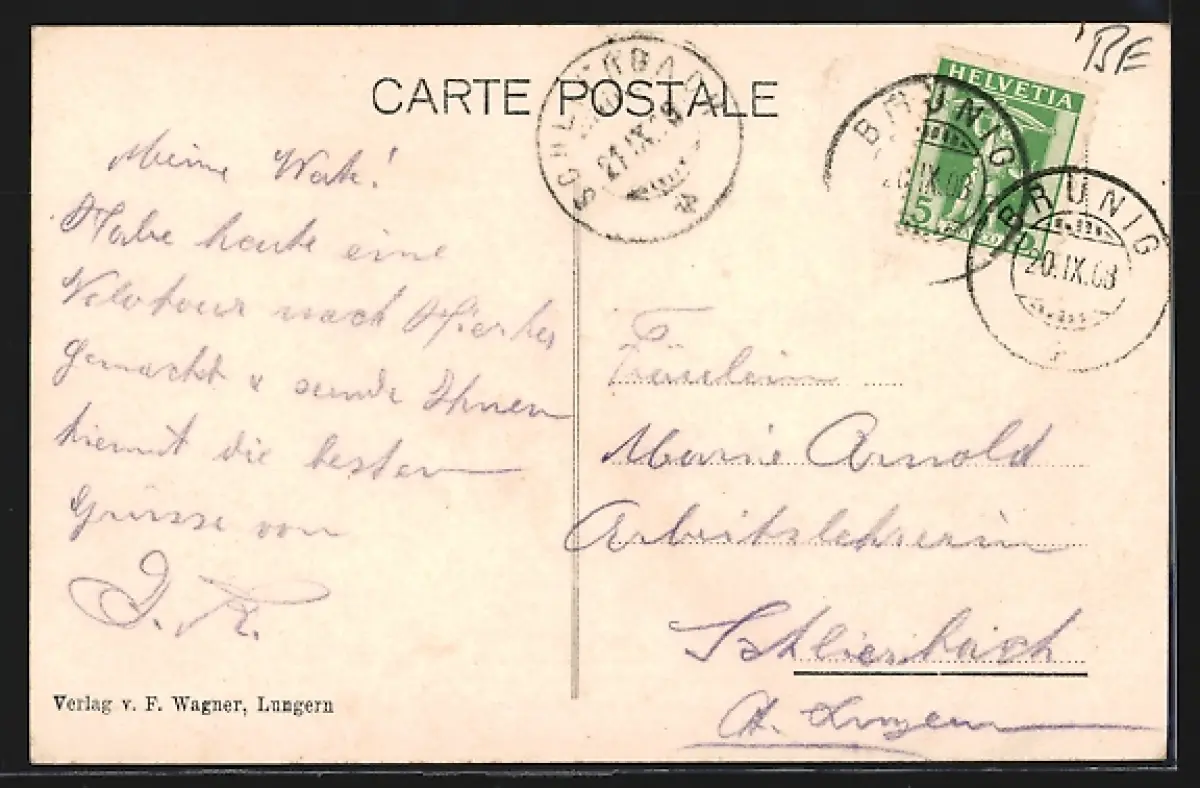 BE
CARTE POSTALE
SCHLIERBACH
21.IX.
HELVETIA
5
BRÜNIG
20.IX.08
BRÜNIG
20.IX.08
Meine
Habe heute eine
Velotour nach Hierher
gemacht & sende Ihnen
hiemit die besten
Grüsse von
Fräulein
Marie Arnold
Arbeitslehrerin
Schlierbach
Ct. Luzern
Verlag v. F. Wagner, Lungern